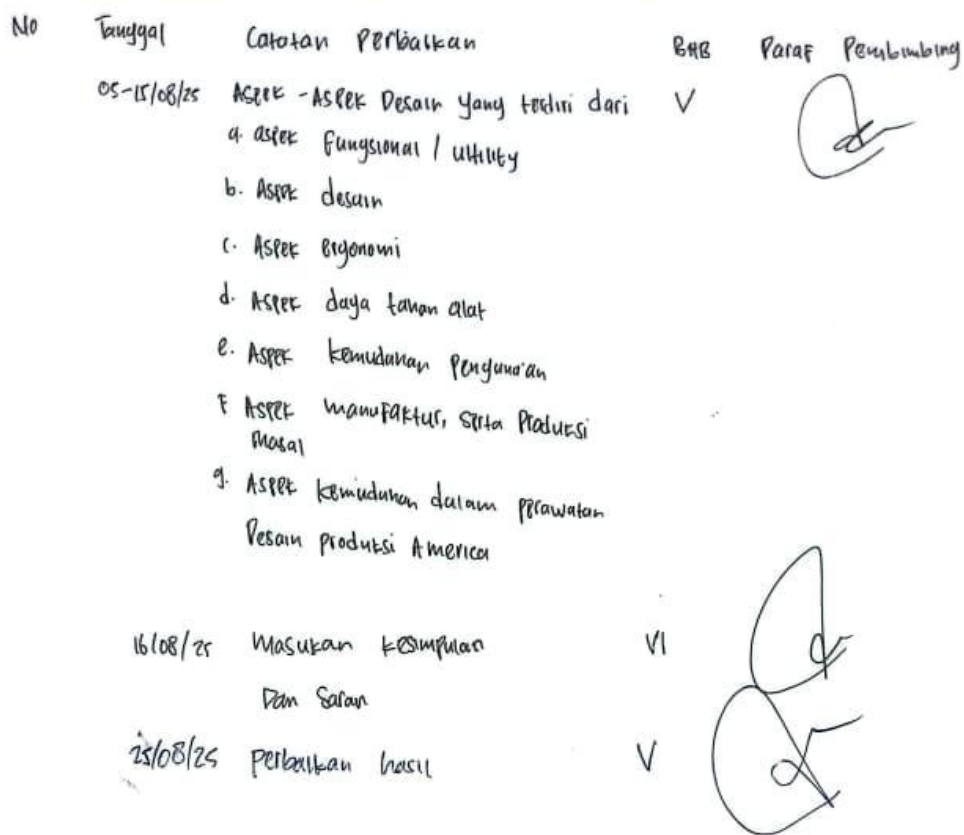 No Tanggal Catatan Perbaikan BAB Paraf Pembimbing
05-15/08/25 Aspek - Aspek Desain yang terdiri dari V
a. aspek Fungsional / utility
b. Aspek desain
c. Aspek ergonomi
d. Aspek daya tahan alat
e. Aspek kemudahan Penguna'an
F Aspek manufaktur, serta Produksi
Masal
g. Aspek kemudahan dalam perawatan
Desain produksi America
16/08/25 Masukan kesimpulan VI
Dan Saran
25/08/25 Perbaikan hasil V